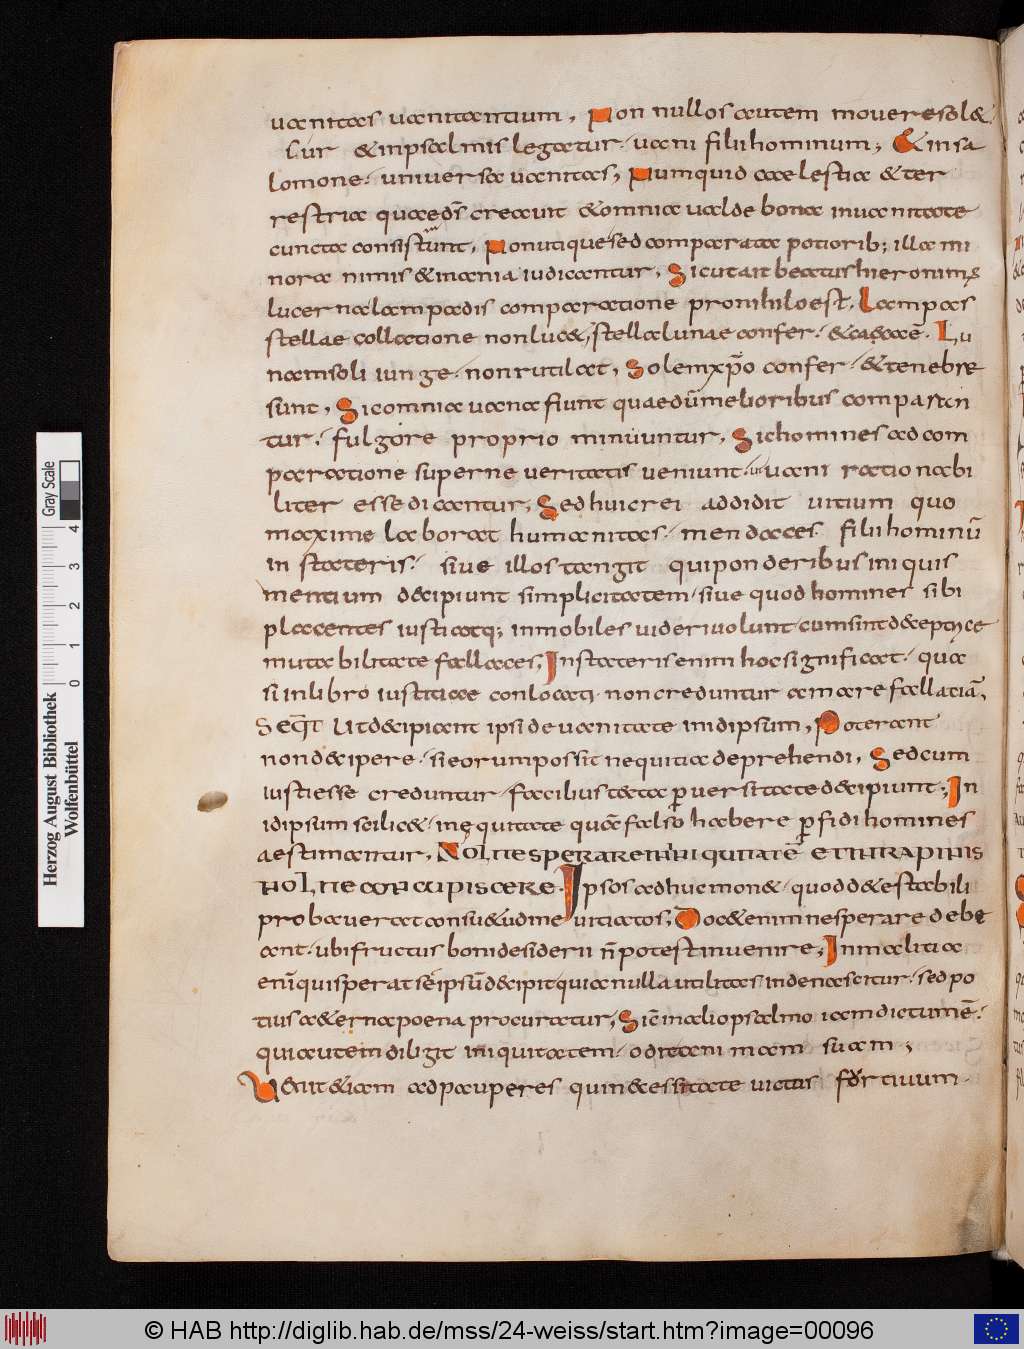 uanitas uanitantium, Non nullos autem mouere sol&,
cur & in psalmis legatur. uani filii hominum; & in sa
lomone. uniuersa uanitas; Numquid caelestia & ter
restria quae ds̄ creauit & omnia ualde bona in uanitate
cuncta consistunt, Non utique sed comparatae potiorib; illa mi
nora nimis & inania iudicantur, Sicut ait beatus hieronimus
lucerna lampadis comparatione pro nihilo est, Lampas
stellae collatione non luc&, stella lunae confer. & caecaē. Lu
nam soli iunge. non rutilat, Solem xp̄o confer. & tenebrę
sunt, Sic omnia uana fiunt quae dū melioribus comparan
tur. fulgore proprio minuuntur, Sic homines ad com
paratione superne ueritatis ueniunt ut uani rationabi
liter esse dicantur, Sed huic rei addidit uitium quo
maxime laborat humanitas. mendaces filii hominū
in stateris. siue illos tangit qui ponderibus iniquis
mentium d&cipiunt simplicitatem. siue quod homines sibi
placentes iusti atq; inmobiles uideri uolunt cum sint d&
mutabilitate fallaces; In stateris enim hoc significat. qua
si in libro iustitiae conlocati non creduntur amare fallaciā,
Seqt̄ Ut d&cipiant ipsi de uanitate in idipsum, Poterant
non d&cipere. si eorum possit nequitia deprehendi, Sed cum
iusti esse creduntur. facilius tecta puersitate d&cipiunt; In
idipsum scilic&. inęquitate quā falso habere pfidi homines
aestimantur, NOLITE SPERARE IN INIQUITATĒ ET IN RAPINIS
NOLITE CONCUPISCERE. Ipsos adhuc mon&. quod d&estabili
probauerat consu&udine uitiatos; Doc& enim ne sperare debe
ant. ubi fructus boni desiderii n̄ potest inuenire, In malitia
enī qui sperat seipsū d&cipit quia nulla utilitas inde nascitur. sed po
tius a&erna poena procuratur, Sic in alio psalmo iam dictum ē.
qui autem diligit iniquitatem. odit animam suam;
Uenit & iam ad pauperes qui n&essitate uictus furtiuum
Gray Scale
0 1 2 3 4
Herzog August Bibliothek
Wolfenbüttel
© HAB http://diglib.hab.de/mss/24-weiss/start.htm?image=00096